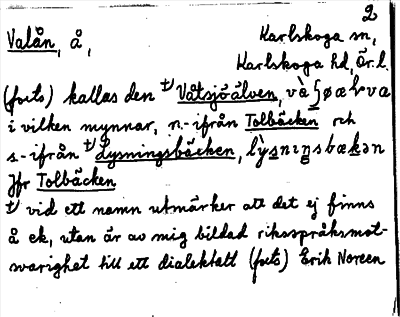 2
Valån, å, Karlskoga sn,
Karlskoga hd, Ör. l.
(forts) kallas den t/ Våtsjöälven, và
i vilken mynnar, n.-ifrån Tolbäcken och
s.-ifrån t/ Lysningsbäcken, lỳsnıŋsbækən
Jfr Tolbäcken
t/ vid ett namn utmärker att det ej finns
å ek, utan är av mig bildad riksspråksmot-
svarighet till ett dialektalt (forts) Erik Noreen